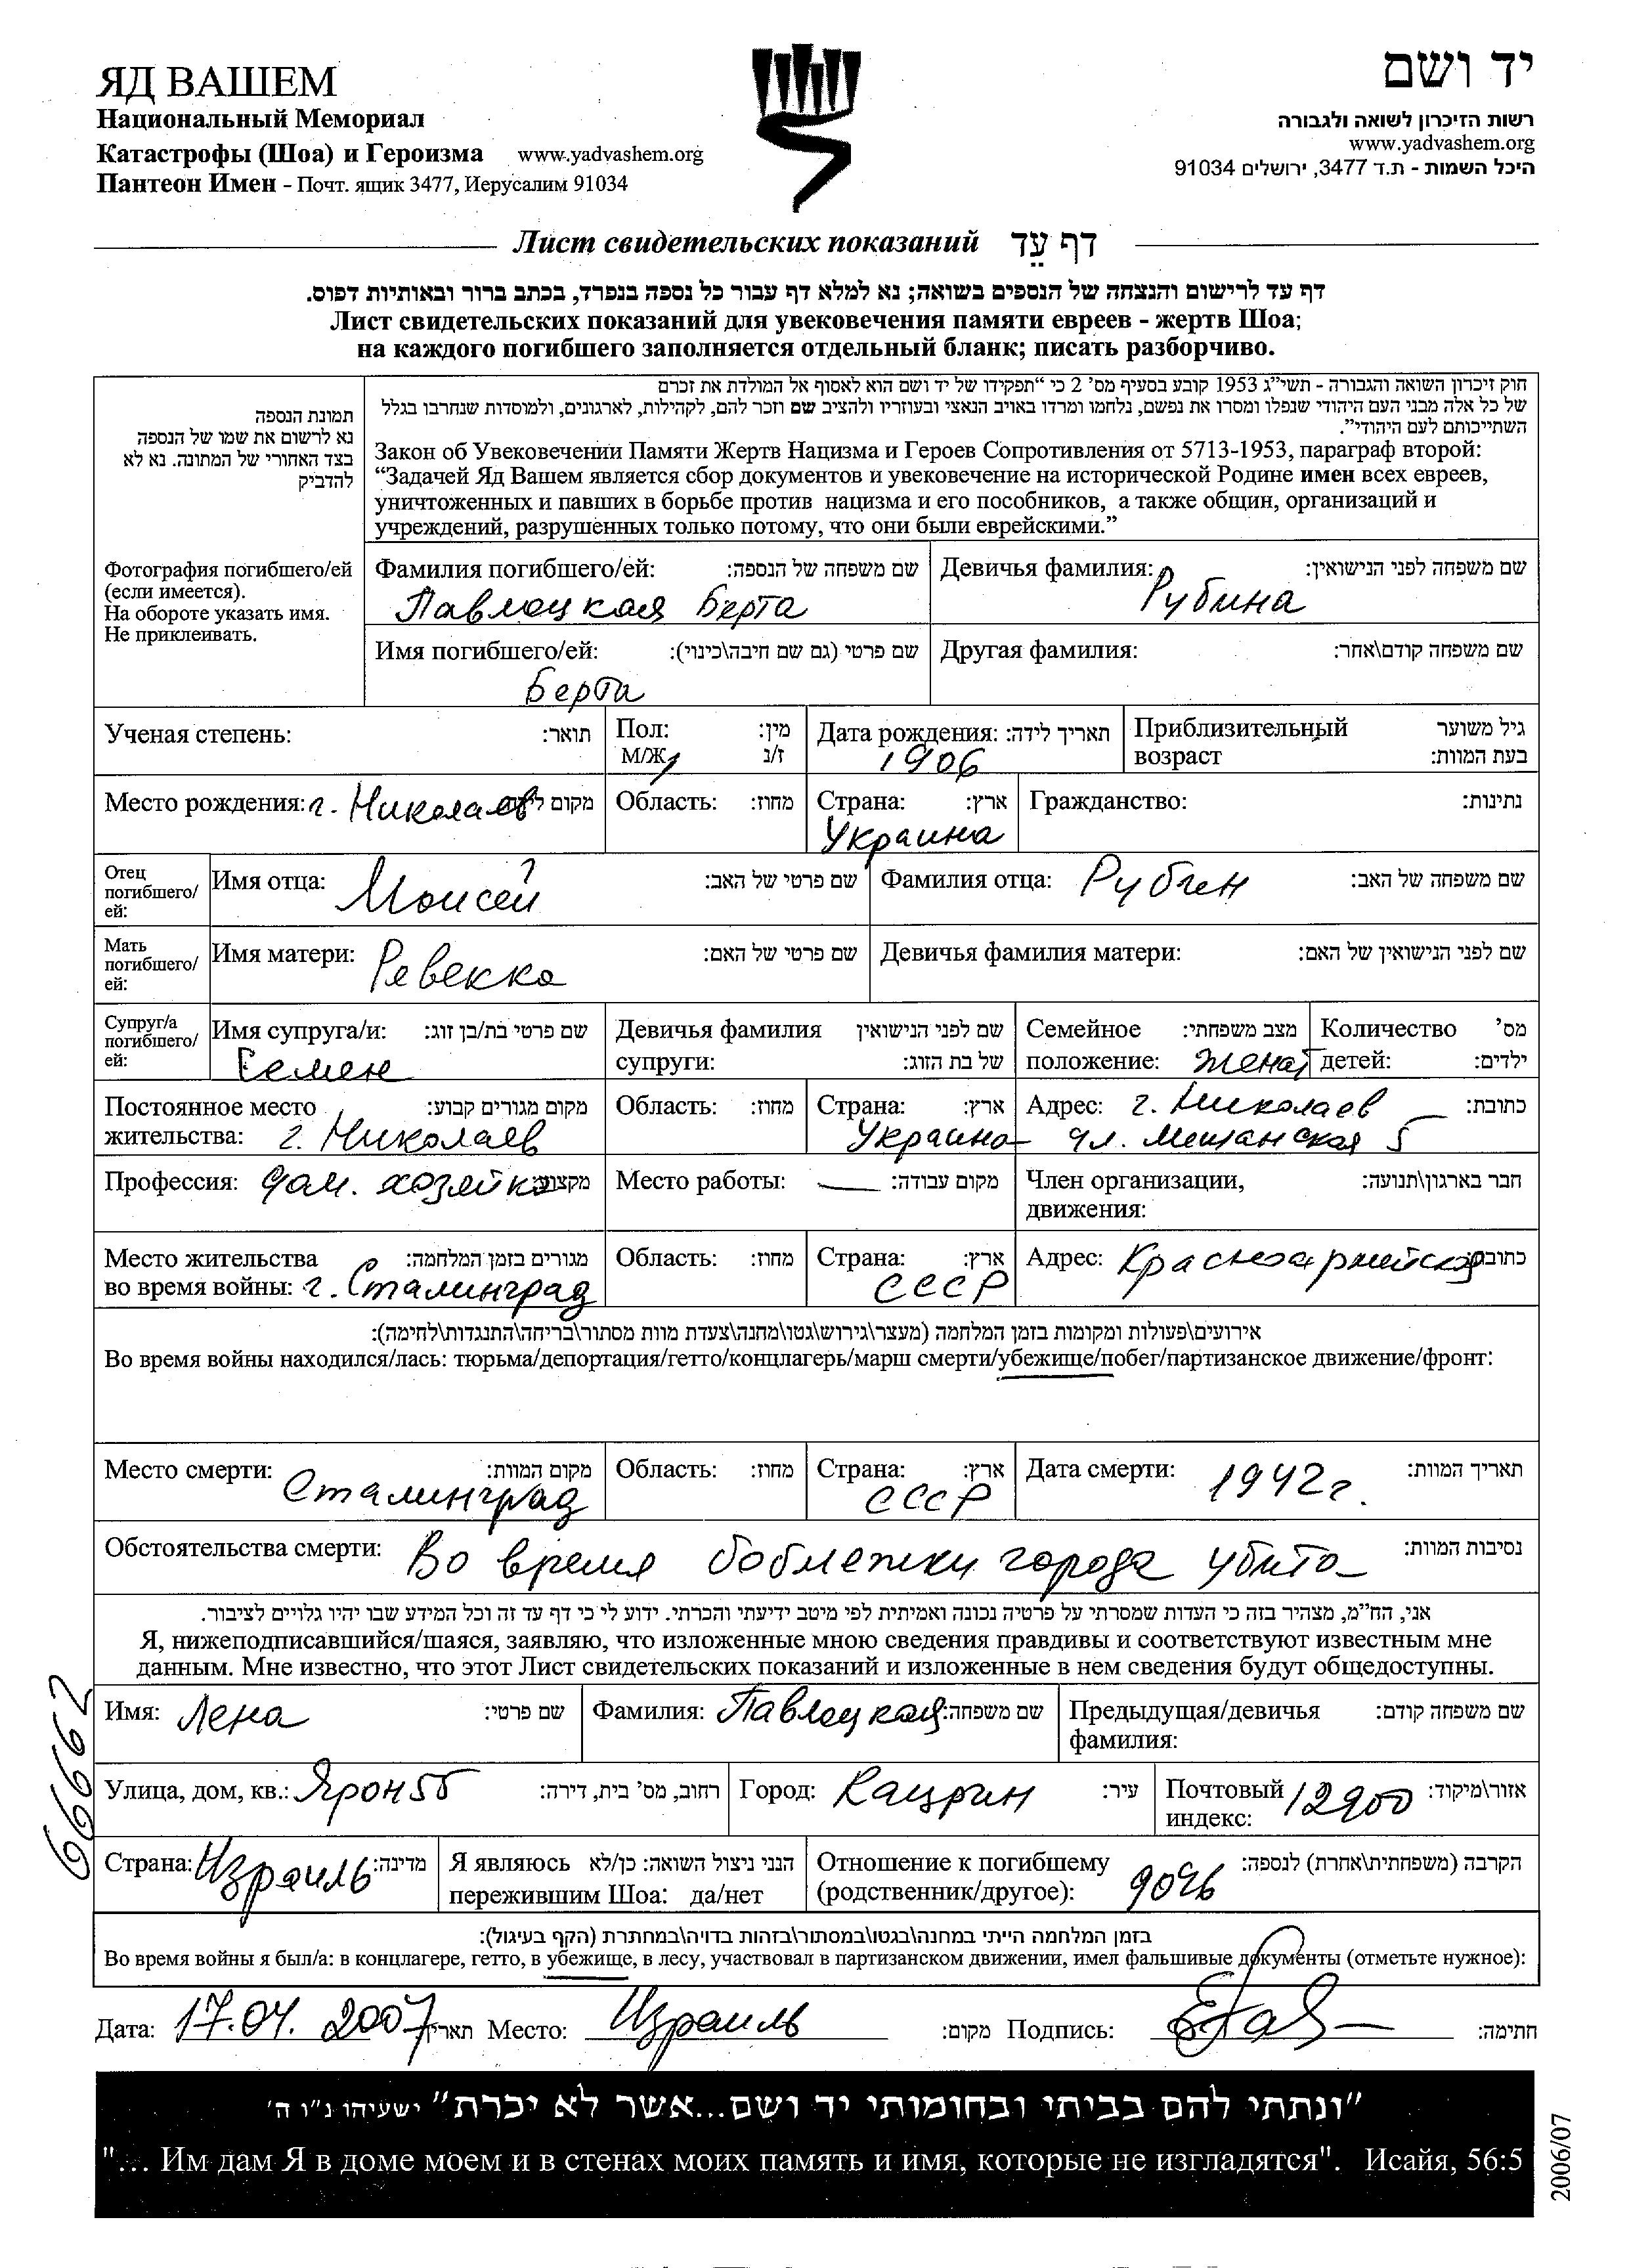 ЯД ВАШЕМ
Национальный Мемориал
Катастрофы (Шоа) и Героизма www.yadvashem.org
Пантеон Имен - Почт. ящик 3477, Иерусалим 91034
יד ושם
רשות הזיכרון לשואה ולגבורה
www.yadvashem.org
היכל השמות - ת.ד 3477, ירושלים 91034
Лист свидетельских показаний דף עֵד
דף עד לרישום והנצחה של הנספים בשואה; נא למלא דף עבור כל נספה בנפרד, בכתב ברור ובאותיות דפוס.
Лист свидетельских показаний для увековечения памяти евреев - жертв Шоа;
на каждого погибшего заполняется отдельный бланк; писать разборчиво.
תמונת הנספה
נא לרשום את שמו של הנספה
בצד האחורי של המתונה. נא לא
להדביק
Фотография погибшего/ей
(если имеется).
На обороте указать имя.
Не приклеивать.
חוק זיכרון השואה והגבורה - תשי״ג 1953 קובע בסעיף מס' 2 כי “תפקידו של יד ושם הוא לאסוף אל המולדת את זכרם
של כל אלה מבני העם היהודי שנפלו ומסרו את נפשם, נלחמו ומרדו באויב הנאצי ובעוזריו ולהציב שם וזכר להם, לקהילות, לארגונים, ולמוסדות שנחרבו בגלל
השתייכותם לעם היהודי”.
Закон об Увековечении Памяти Жертв Нацизма и Героев Сопротивления от 5713-1953, параграф второй:
“Задачей Яд Вашем является сбор документов и увековечение на исторической Родине имен всех евреев,
уничтоженных и павших в борьбе против нацизма и его пособников, а также общин, организаций и
учреждений, разрушенных только потому, что они были еврейскими.”
Фамилия погибшего/ей: שם משפחה של הנספה: Девичья фамилия: שם משפחה לפני הנישואין:
Павлоцкая Берта Рубина
Имя погибшего/ей: שם פרטי (גם שם חיבה\כינוי): Другая фамилия: שם משפחה קודם\אחר:
Берта
Ученая степень: תואר: Пол: מין: Дата рождения: תאריך לידה: Приблизительный גיל משוער
М/Ж ז/נ 1906 возраст בעת המוות:
Место рождения: г. Николаев מקום Область: מחוז: Страна: ארץ: Гражданство: נתינות:
Украина
Отец
погибшего/
ей:
Имя отца: Моисей שם פרטי של האב: Фамилия отца: Рубин שם משפחה של האב:
Мать
погибшего/
ей:
Имя матери: Ревекка שם פרטי של האם: Девичья фамилия матери: שם לפני הנישואין של האם:
Супруг/а
погибшего/
ей:
Имя супруга/и: שם פרטי בת/בן זוג: Девичья фамилия שם לפני הנישואין Семейное מצב משפחתי: Количество מס'
Семен супруги: של בת הזוג: положение: женат детей: ילדים:
Постоянное место מקום מגורים קבוע: Область: מחוז: Страна: ארץ: Адрес: г. Николаев כתובת:
жительства: г. Николаев Украина ул. Мещанская 5
Профессия: дом. хозяйка Место работы: — מקום עבודה: Член организации, חבר בארגון\תנועה:
движения:
Место жительства מגורים בזמן המלחמה: Область: מחוז: Страна: ארץ: Адрес: Красноармейская כתובת
во время войны: г. Сталинград СССР
אירועים\פעולות ומקומות בזמן המלחמה (מעצר\גירוש\גטו\מחנה\צעדת מוות מסתור\בריחה\התנגדות\לחימה):
Во время войны находился/лась: тюрьма/депортация/гетто/концлагерь/марш смерти/убежище/побег/партизанское движение/фронт:
Место смерти: מקום המוות: Область: מחוז: Страна: ארץ: Дата смерти: 1942г. תאריך המוות:
Сталинград СССР
Обстоятельства смерти: Во время бобмежки города убита נסיבות המוות:
אני, הח״מ, מצהיר בזה כי העדות שמסרתי על פרטיה נכונה ואמיתית לפי מיטב ידיעתי והכרתי. ידוע לי כי דף עד זה וכל המידע שבו יהיו גלויים לציבור.
Я, нижеподписавшийся/шаяся, заявляю, что изложенные мною сведения правдивы и соответствуют известным мне
данным. Мне известно, что этот Лист свидетельских показаний и изложенные в нем сведения будут общедоступны.
66662
Имя: Лена שם פרטי: Фамилия: Павлоцкая שם משפחה: Предыдущая/девичья שם משפחה קודם:
фамилия:
Улица, дом, кв.: Ярон 55 רחוב, מס' בית, דירה: Город: Кацрин עיר: Почтовый 12900 אזור\מיקוד:
индекс:
Страна: Израиль מדינה: Я являюсь הנני ניצול השואה: כן/לא Отношение к погибшему הקרבה (משפחתית\אחרת) לנספה:
пережившим Шоа: да/нет (родственник/другое): дочь
בזמן המלחמה הייתי במחנה\בגטו\במסתור\בזהות בדויה\במחתרת (הקף בעיגול):
Во время войны я был/а: в концлагере, гетто, в убежище, в лесу, участвовал в партизанском движении, имел фальшивые документы (отметьте нужное):
Дата: 17.04.2007 Место: Израиль מקום: Подпись: חתימה:
“ונתתי להם בביתי ובחומותי יד ושם...אשר לא יכרת” ישעיהו נ״ו ה'
"... Им дам Я в доме моем и в стенах моих память и имя, которые не изгладятся". Исайя, 56:5
2006/07